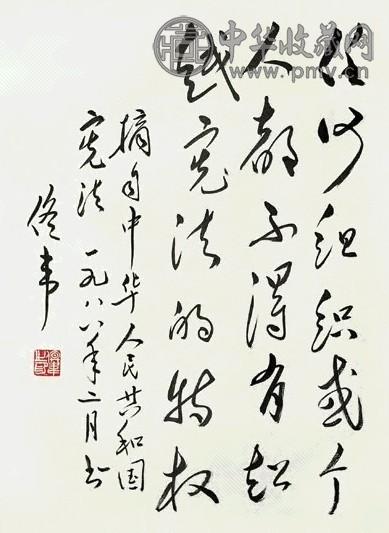 中华收藏网
www.pmv.cn
任何组织或个
人都不得有超
越宪法的特权
摘自中华人民共和国
宪法 一九八八年二月书
佟韦